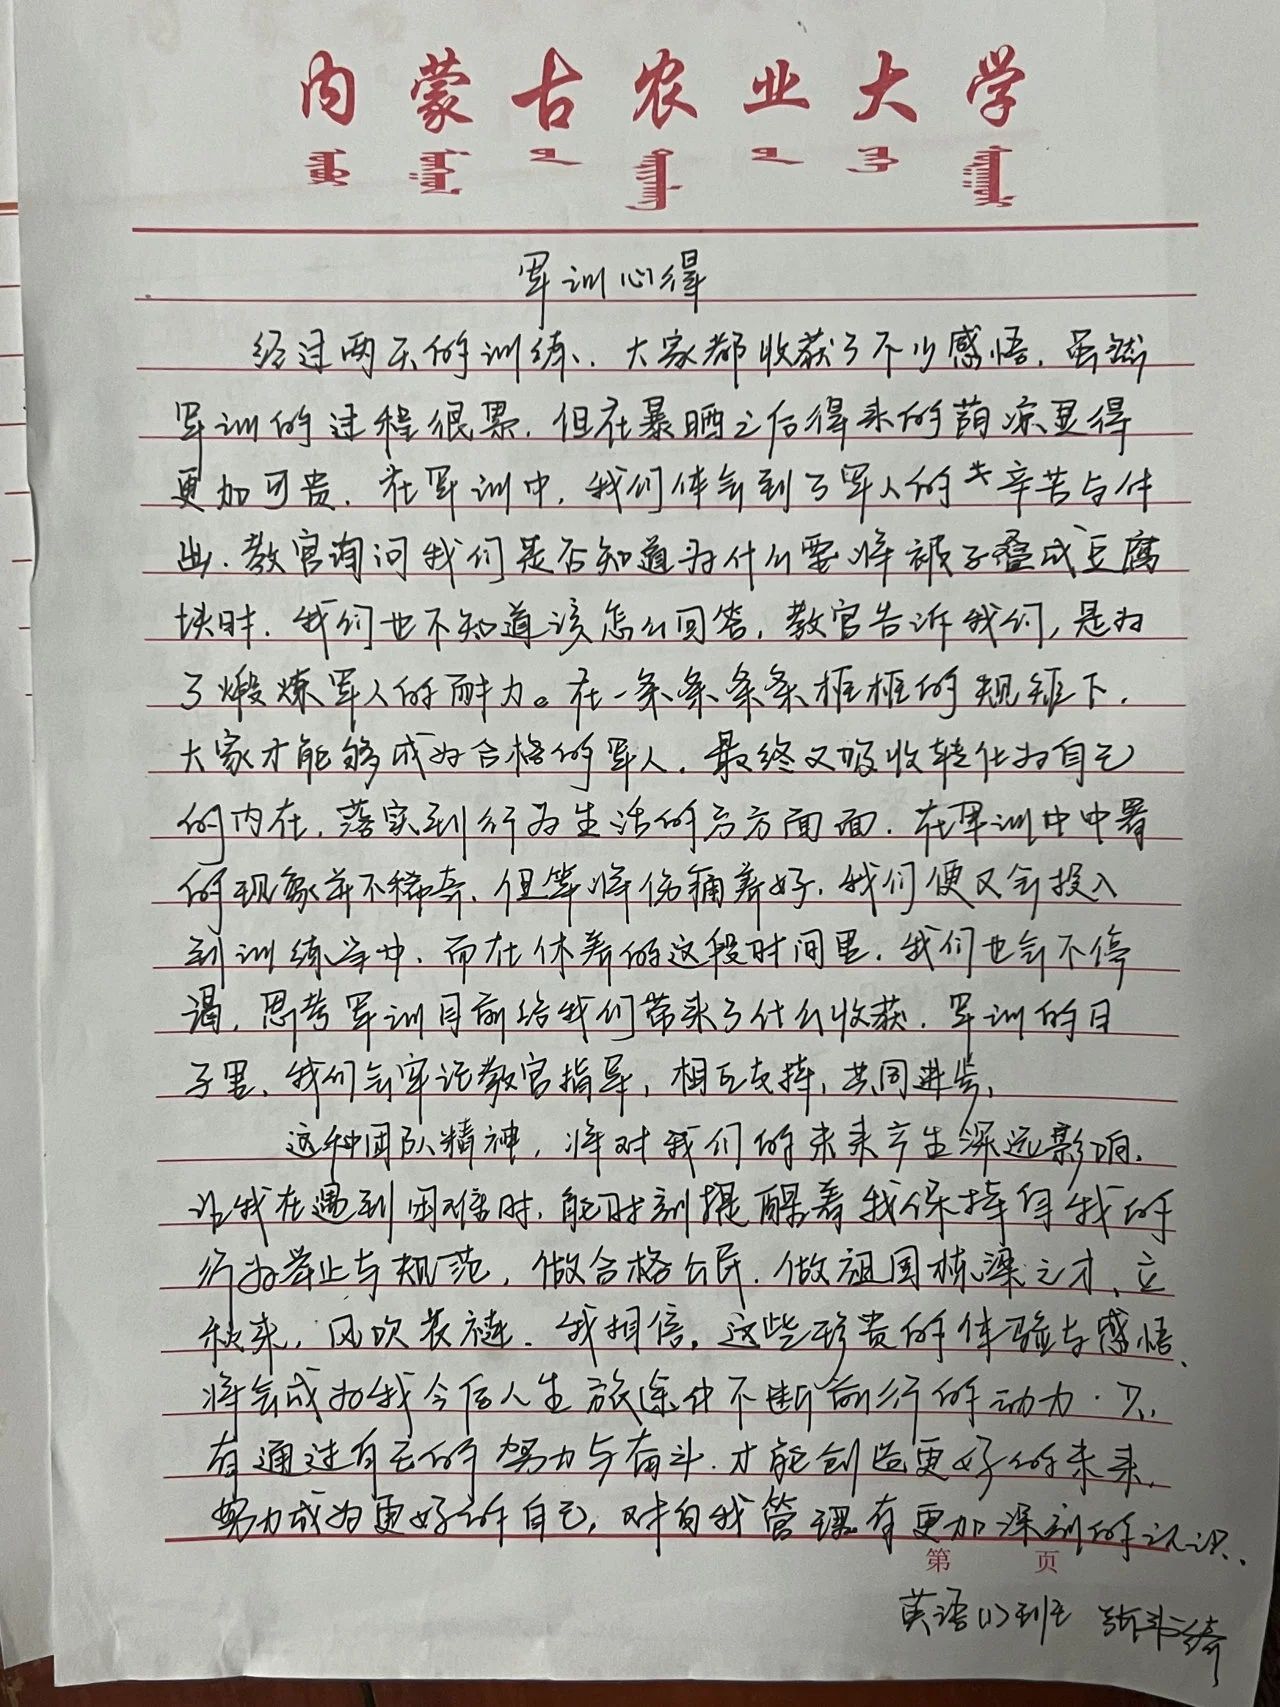 内蒙古农业大学
军训心得
经过两天的训练,大家都收获了不少感悟.虽然
军训的过程很累,但在暴晒之后得来的荫凉显得
更加可贵.在军训中,我们体会到了军人的辛苦与付
出.教官询问我们是否知道为什么要将被子叠成豆腐
块时,我们也不知道该怎么回答,教官告诉我们,是为
了煅炼军人的耐力。在一条条条条框框的规矩下,
大家才能够成为合格的军人,最终又吸收转化为自己
的内在,落实到行为生活的方方面面.在军训中中暑
的现象并不稀奇,但等将伤痛养好,我们便又会投入
到训练当中,而在休养的这段时间里,我们也会不停
遏,思考军训目前给我们带来了什么收获.军训的日
子里,我们会牢记教官指导,相互支持,共同进步,
这种团队精神,将对我们的未来产生深远影响.
让我在遇到困难时,能时刻提醒着我保持自我的
行为举止与规范,做合格公民.做祖国栋梁之才,立
秋来,风吹衣裢.我相信,这些珍贵的体验与感悟,
将会成为我今后人生旅途中不断前行的动力.只
有通过自己的努力与奋斗,才能创造更好的未来,
努力成为更好的自己,对自我管理有更加深刻的认识.
第 页
英语(1)班